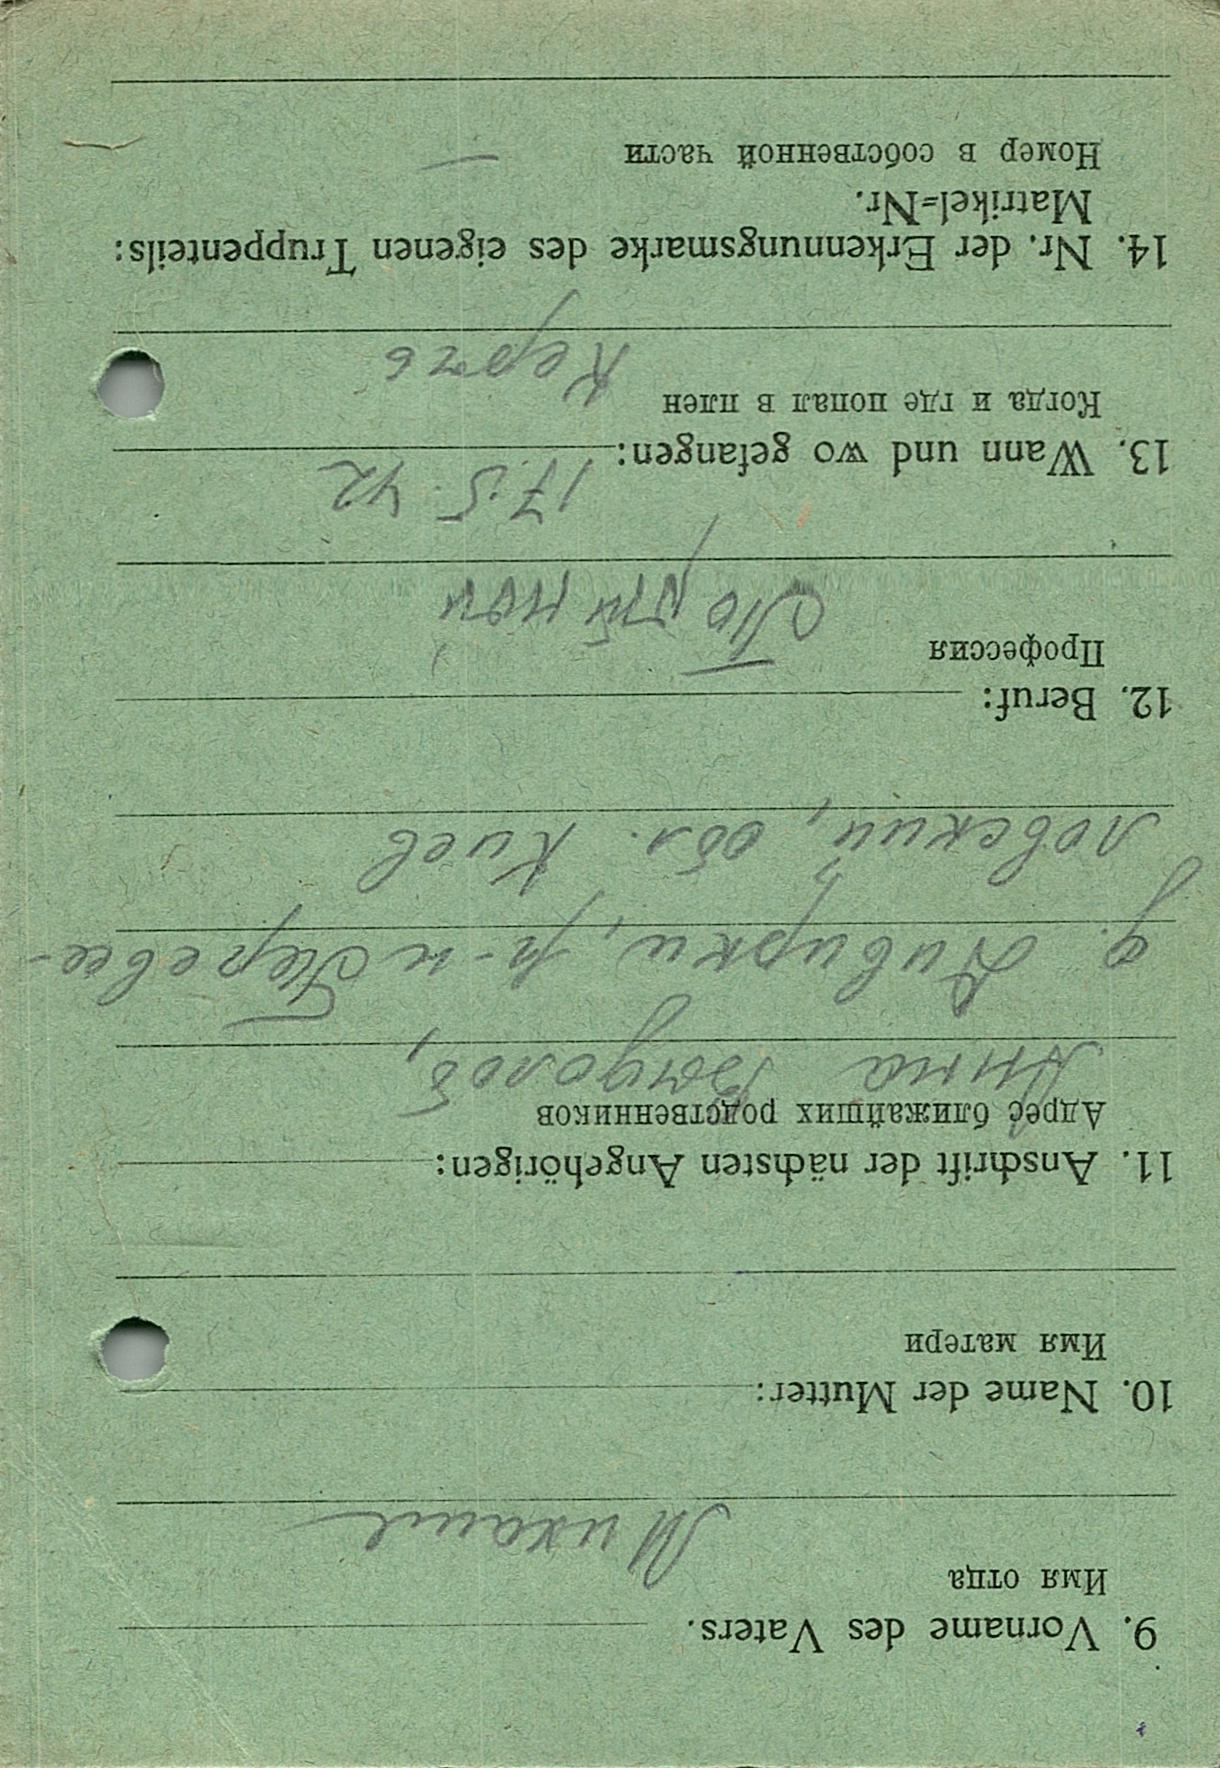 9. Vorname des Vaters.
Имя отца
Михаил
10. Name der Mutter:
Имя матери
11. Anschrift der nächsten Angehörigen:
Адрес ближайших родственников
Анна
д. Дивирки, р-н Перевес-
ловский, обл. Киев
12. Beruf:
Профессия
Портной
13. Wann und wo gefangen:
17.5.42
Когда и где попал в плен
Керчь
14. Nr. der Erkennungsmarke des eigenen Truppenteils:
Matrikel=Nr.
Номер в собственной части
—